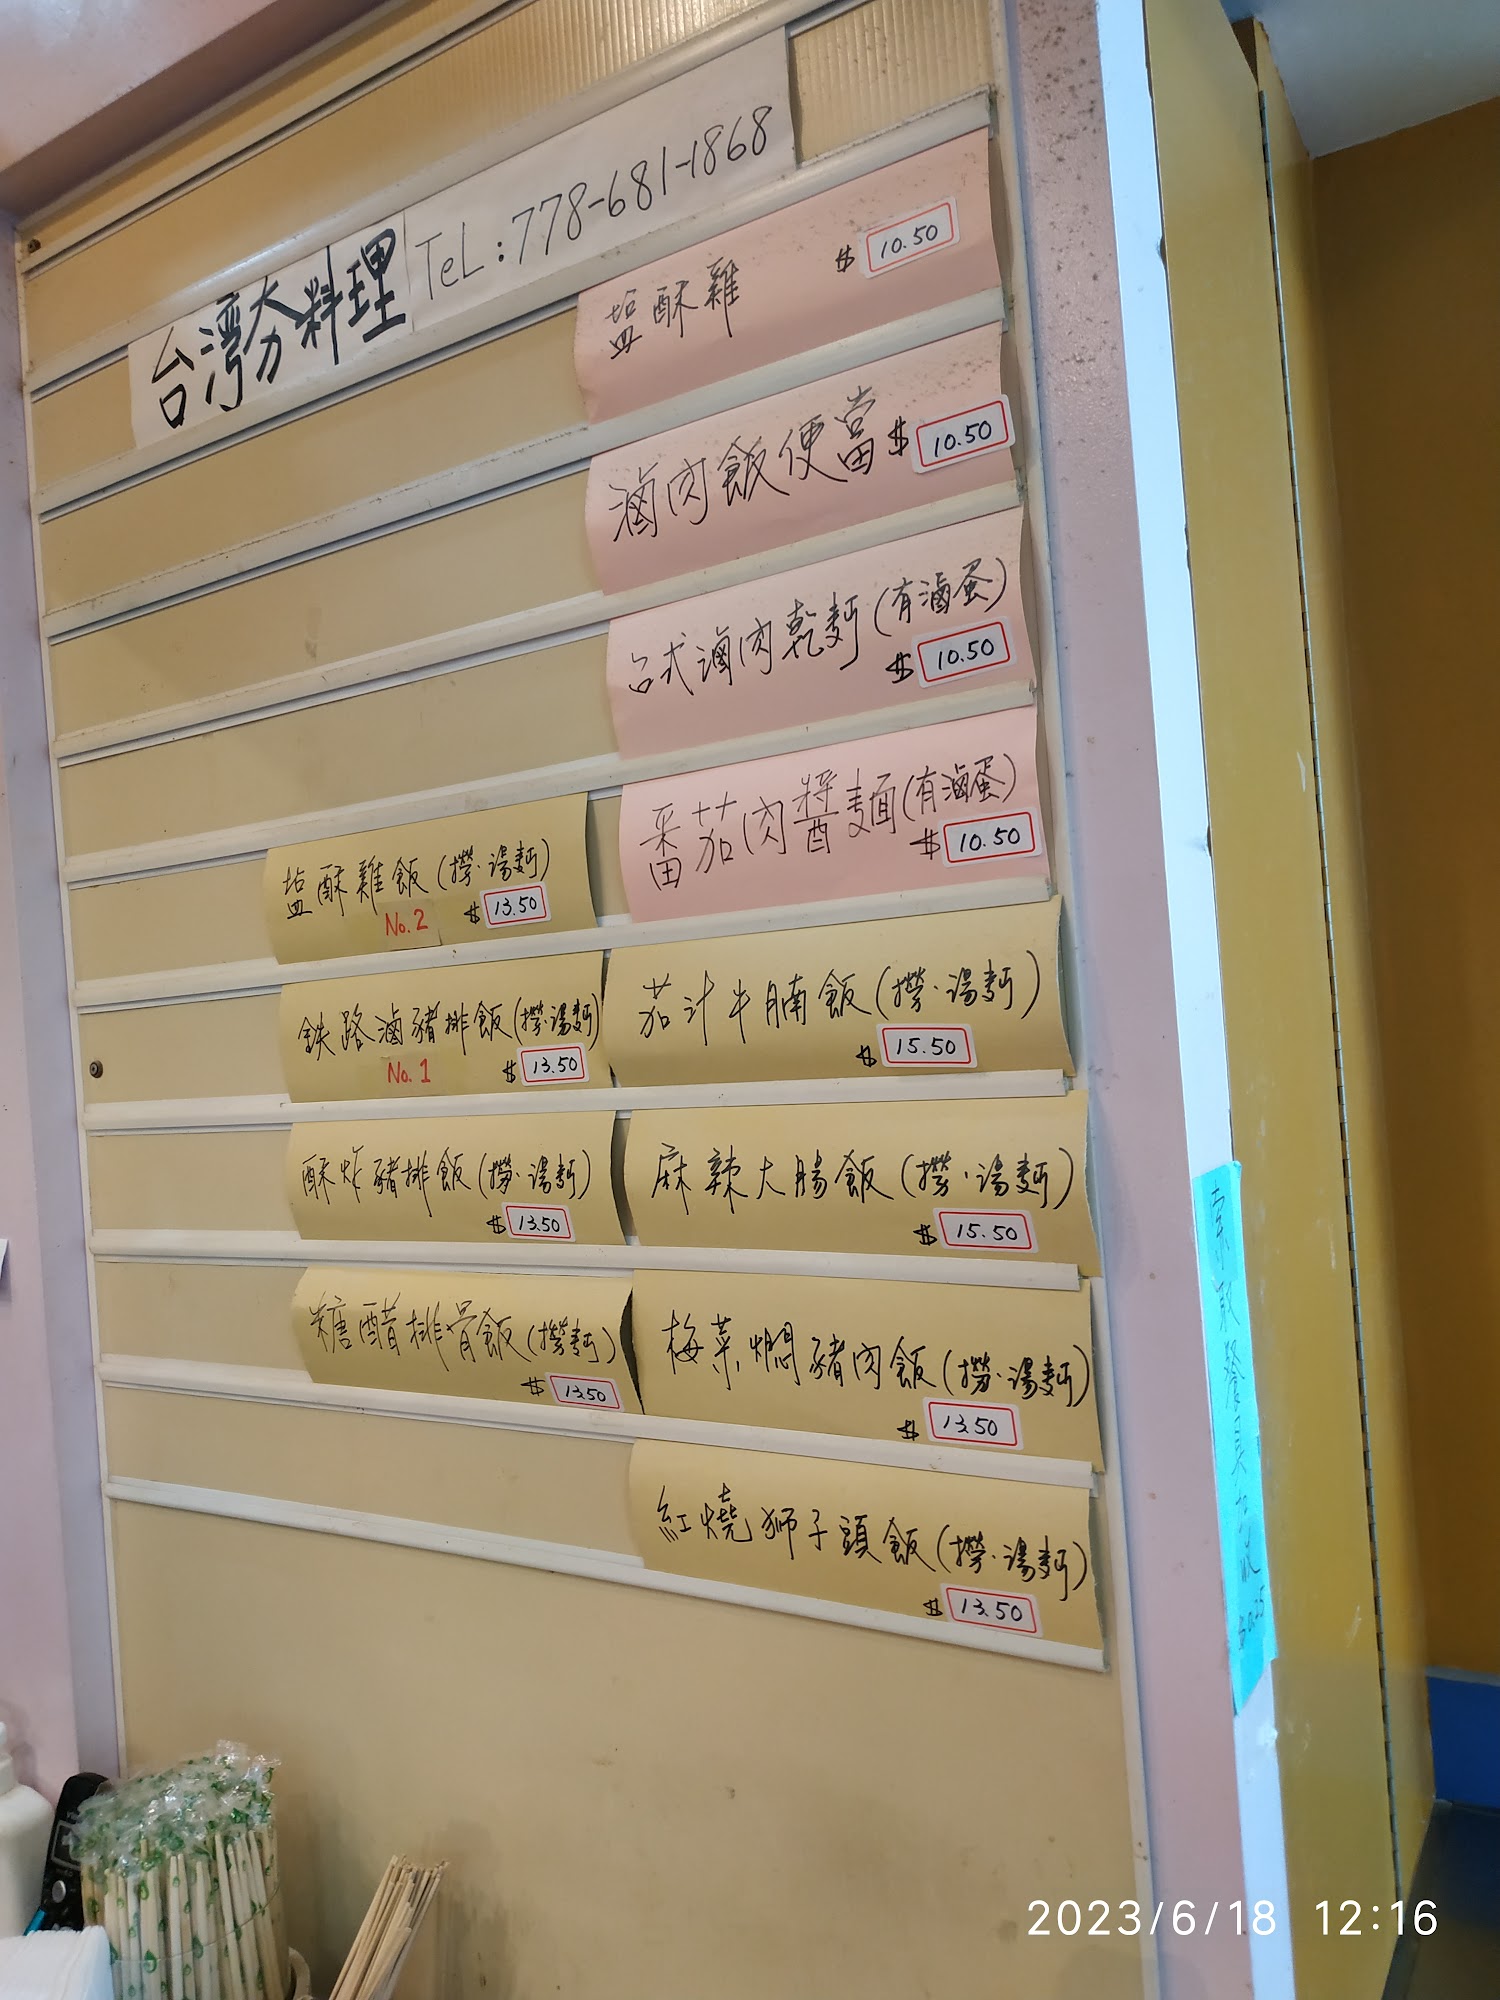 台灣夯料理 TeL:778-681-1868
塩酥雞 $ 10.50
滷肉飯便當 $ 10.50
台式滷肉乾麪(有滷蛋)
$ 10.50
番茄肉醬麵(有滷蛋)
$ 10.50
塩酥雞飯(撈·湯麪)
No.2 $ 13.50
鉄路滷豬排飯(撈·湯麪)
No.1 $ 13.50
茄汁牛腩飯(撈·湯麪)
$ 15.50
酥炸豬排飯(撈·湯麪)
$ 13.50
麻辣大腸飯(撈·湯麪)
$ 15.50
糖醋排骨飯(撈麪)
$ 13.50
梅菜焖豬肉飯(撈·湯麪)
$ 13.50
紅燒狮子頭飯(撈·湯麪)
$ 13.50
2023/6/18 12:16